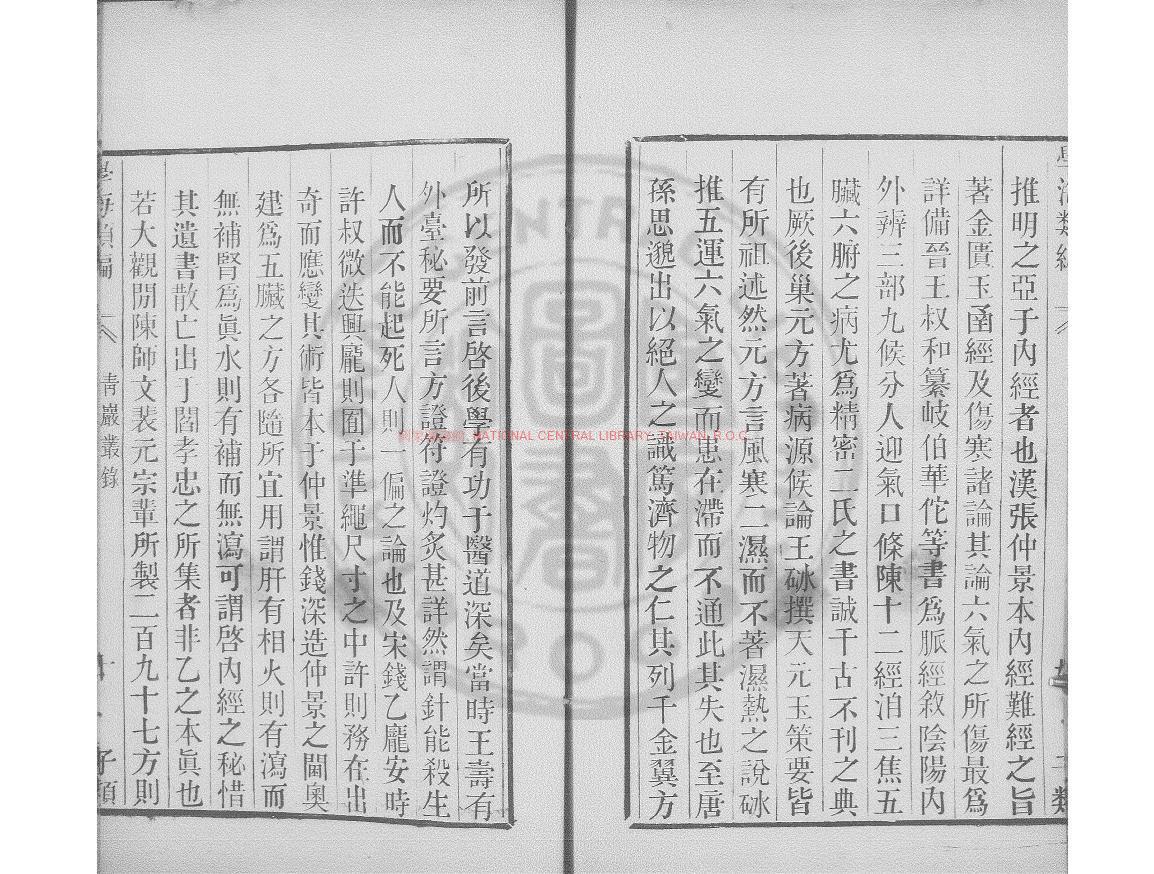 推明之亞于內經者也漢張仲景本內經難經之旨
著金匱玉函經及傷寒諸論其論六氣之所傷最爲
詳備晉王叔和纂岐伯華佗等書爲脈經敘陰陽內
外辨三部九候分人迎氣口條陳十二經洎三焦五
臟六腑之病尤爲精密二氏之書誠千古不刊之典
也厥後巢元方著病源候論王砅撰天元玉策要皆
有所祖述然元方言風寒二濕而不著濕熱之說砅
推五運六氣之變而患在滯而不通此其失也至唐
孫思邈出以絕人之識篤濟物之仁其列千金翼方
所以發前言啓後學有功于醫道深矣當時王壽有
外臺秘要所言方證符證灼炙甚詳然謂針能殺生
人而不能起死人則一偏之論也及宋錢乙龐安時
許叔微迭興龐則囿于準繩尺寸之中許則務在出
奇而應變其術皆本于仲景惟錢深造仲景之閫奧
建爲五臟之方各隨所宜用謂肝有相火則有瀉而
無補腎爲眞水則有補而無瀉可謂啓內經之秘惜
其遺書散亡出于閻孝忠之所集者非乙之本眞也
若大觀閒陳師文裴元宗輩所製二百九十七方則
青巖叢錄
NATIONAL CENTRAL LIBRARY, TAIWAN, R.O.C.